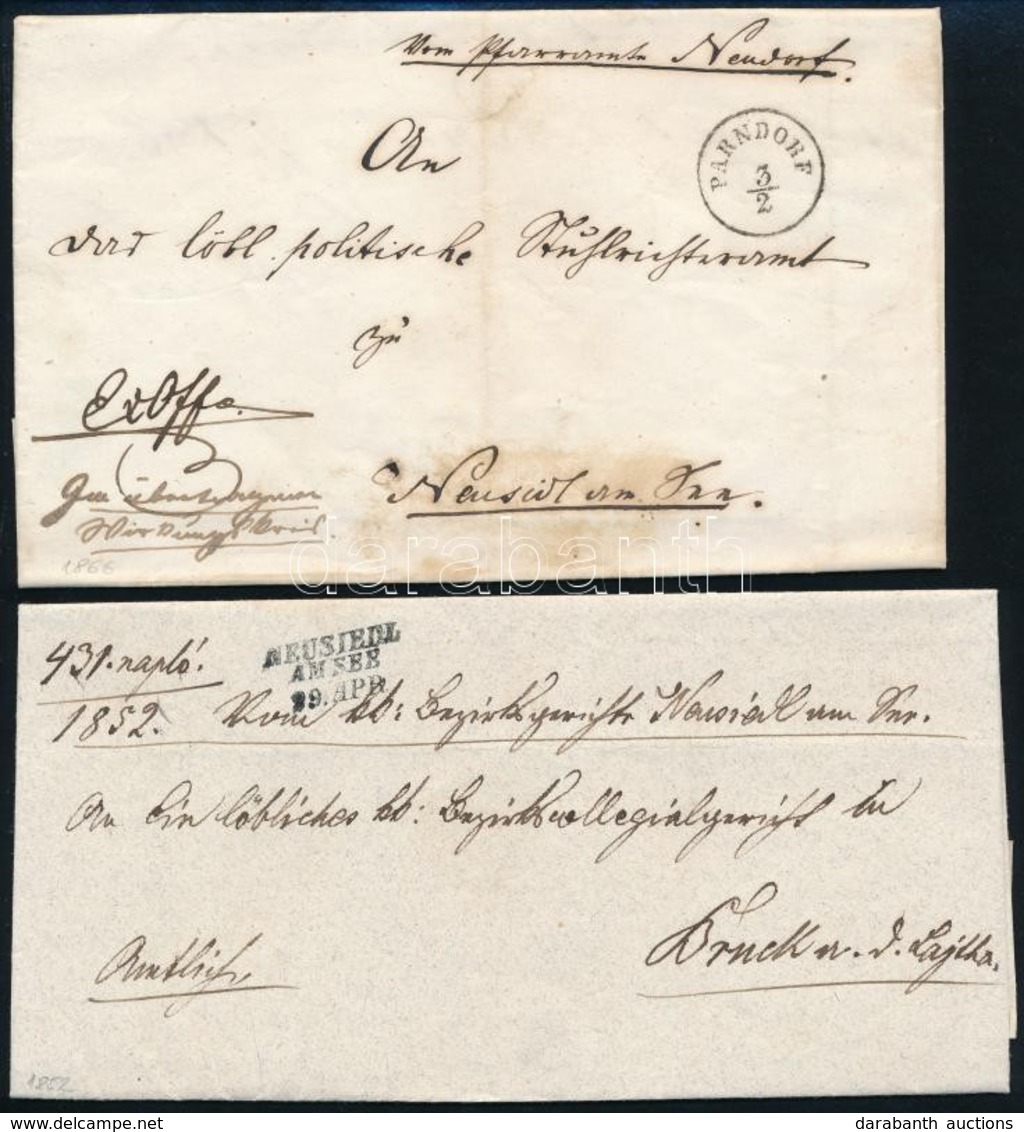 Vom Pfarramte Neudorf.
PARNDORF
3/2
An
das löbl. politische Stuhlrichteramt
zu
Ex Offo.
Neusidl am See.
Im übertragenen
Wirkungskreis.
1866
darabanth
431. napló.
1852.
NEUSIEDL
AM SEE
29. APR
Vom kk: Bezirksgerichte Neusiedl am See.
An Ein löbliches kk: Bezirkscollegialgericht in
Bruck a. d. Lajtha.
Amtlich,
1852
darabanth auctions